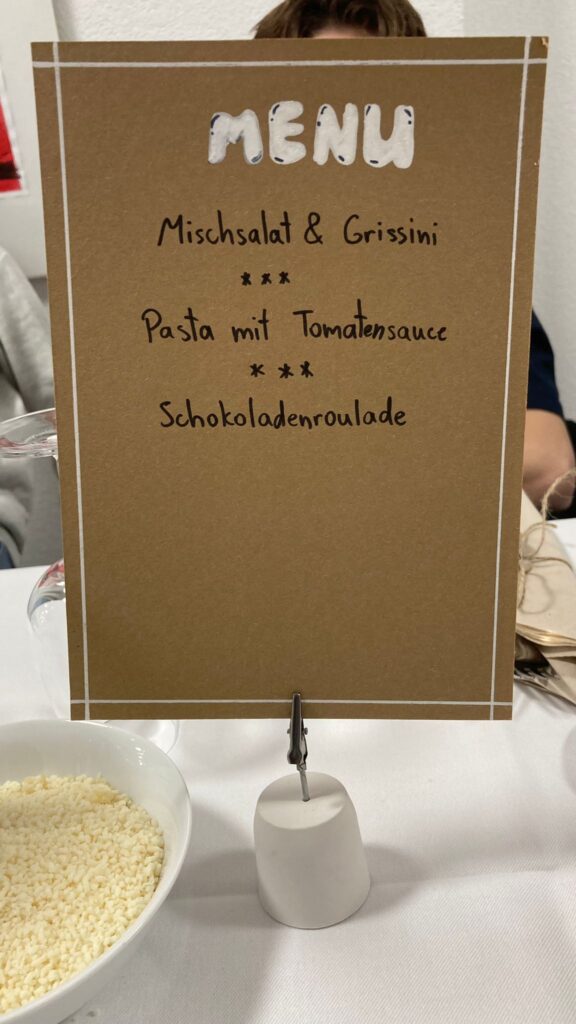 MENU
Mischsalat & Grissini
***
Pasta mit Tomatensauce
***
Schokoladenroulade